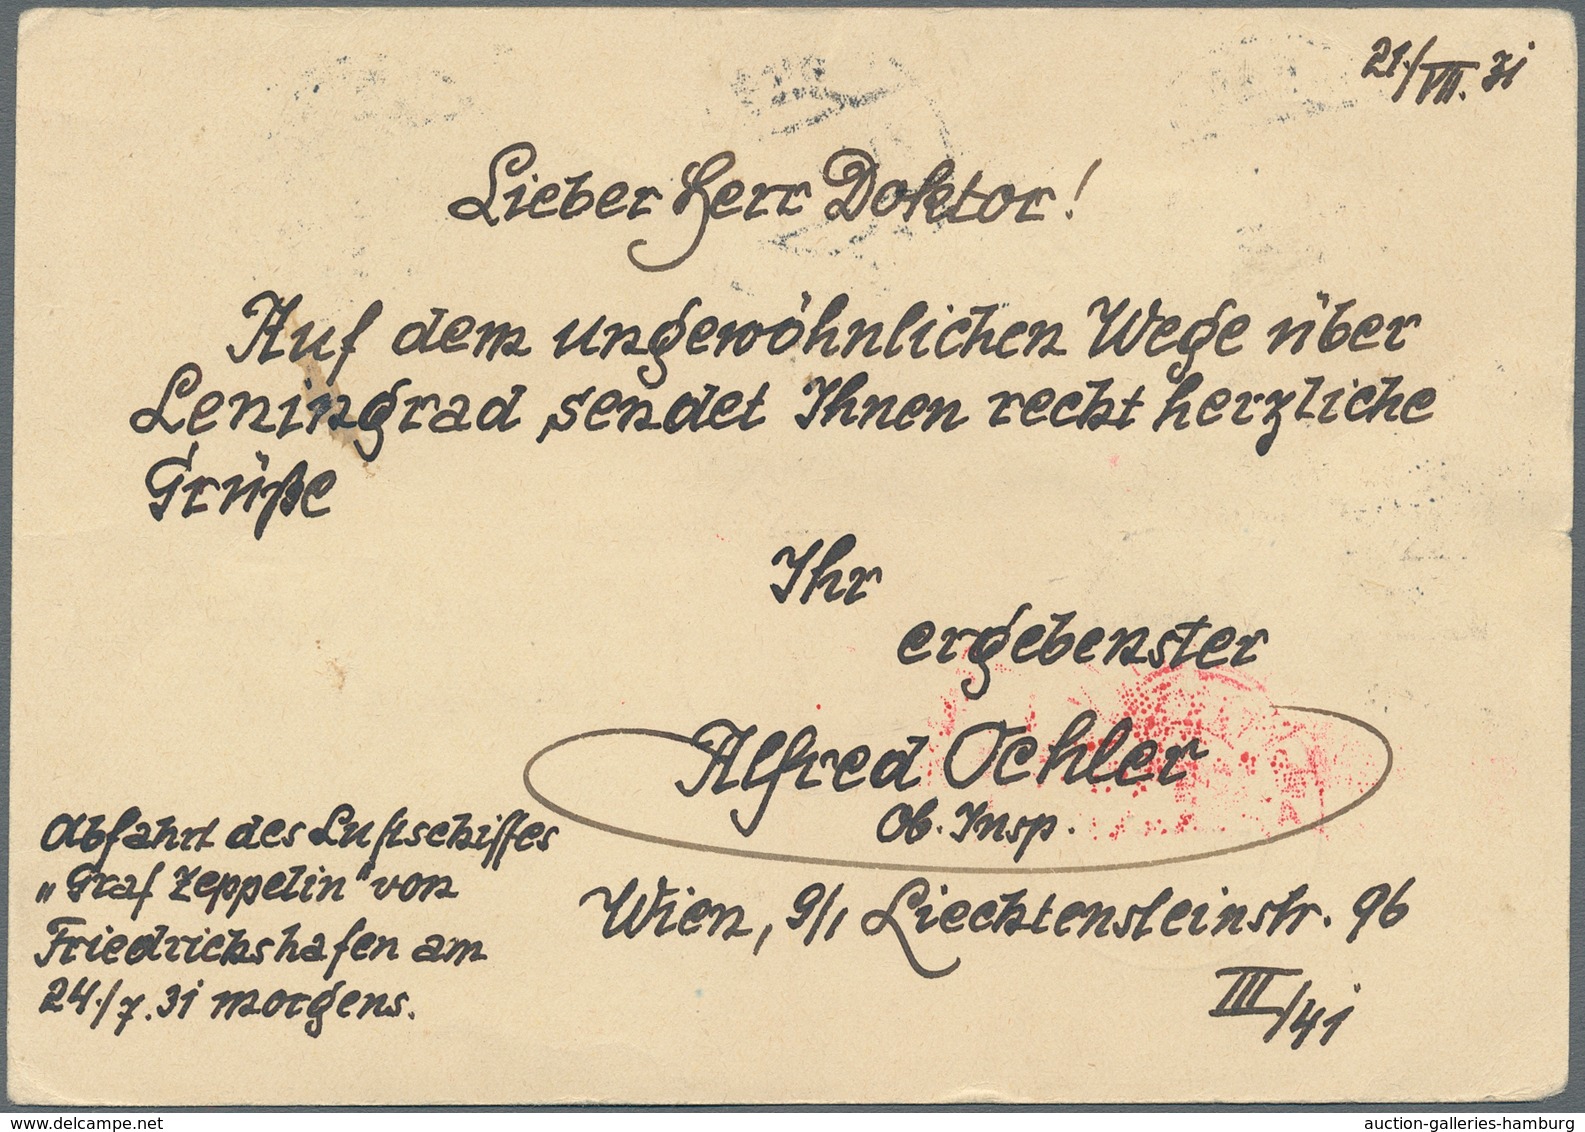 21./VII. 31
Lieber Herr Doktor!
Auf dem ungewöhnlichen Wege über
Leningrad sendet Ihnen recht herzliche
Grüße
Ihr
ergebenster
Alfred Oehler
Ob. Insp.
Abfahrt des Luftschiffes
„Graf Zeppelin" von
Friedrichshafen am
24./7. 31 morgens.
Wien, 9/1 Liechtensteinstr. 96
III/41
delcampe.net
auction-galleries-hamburg